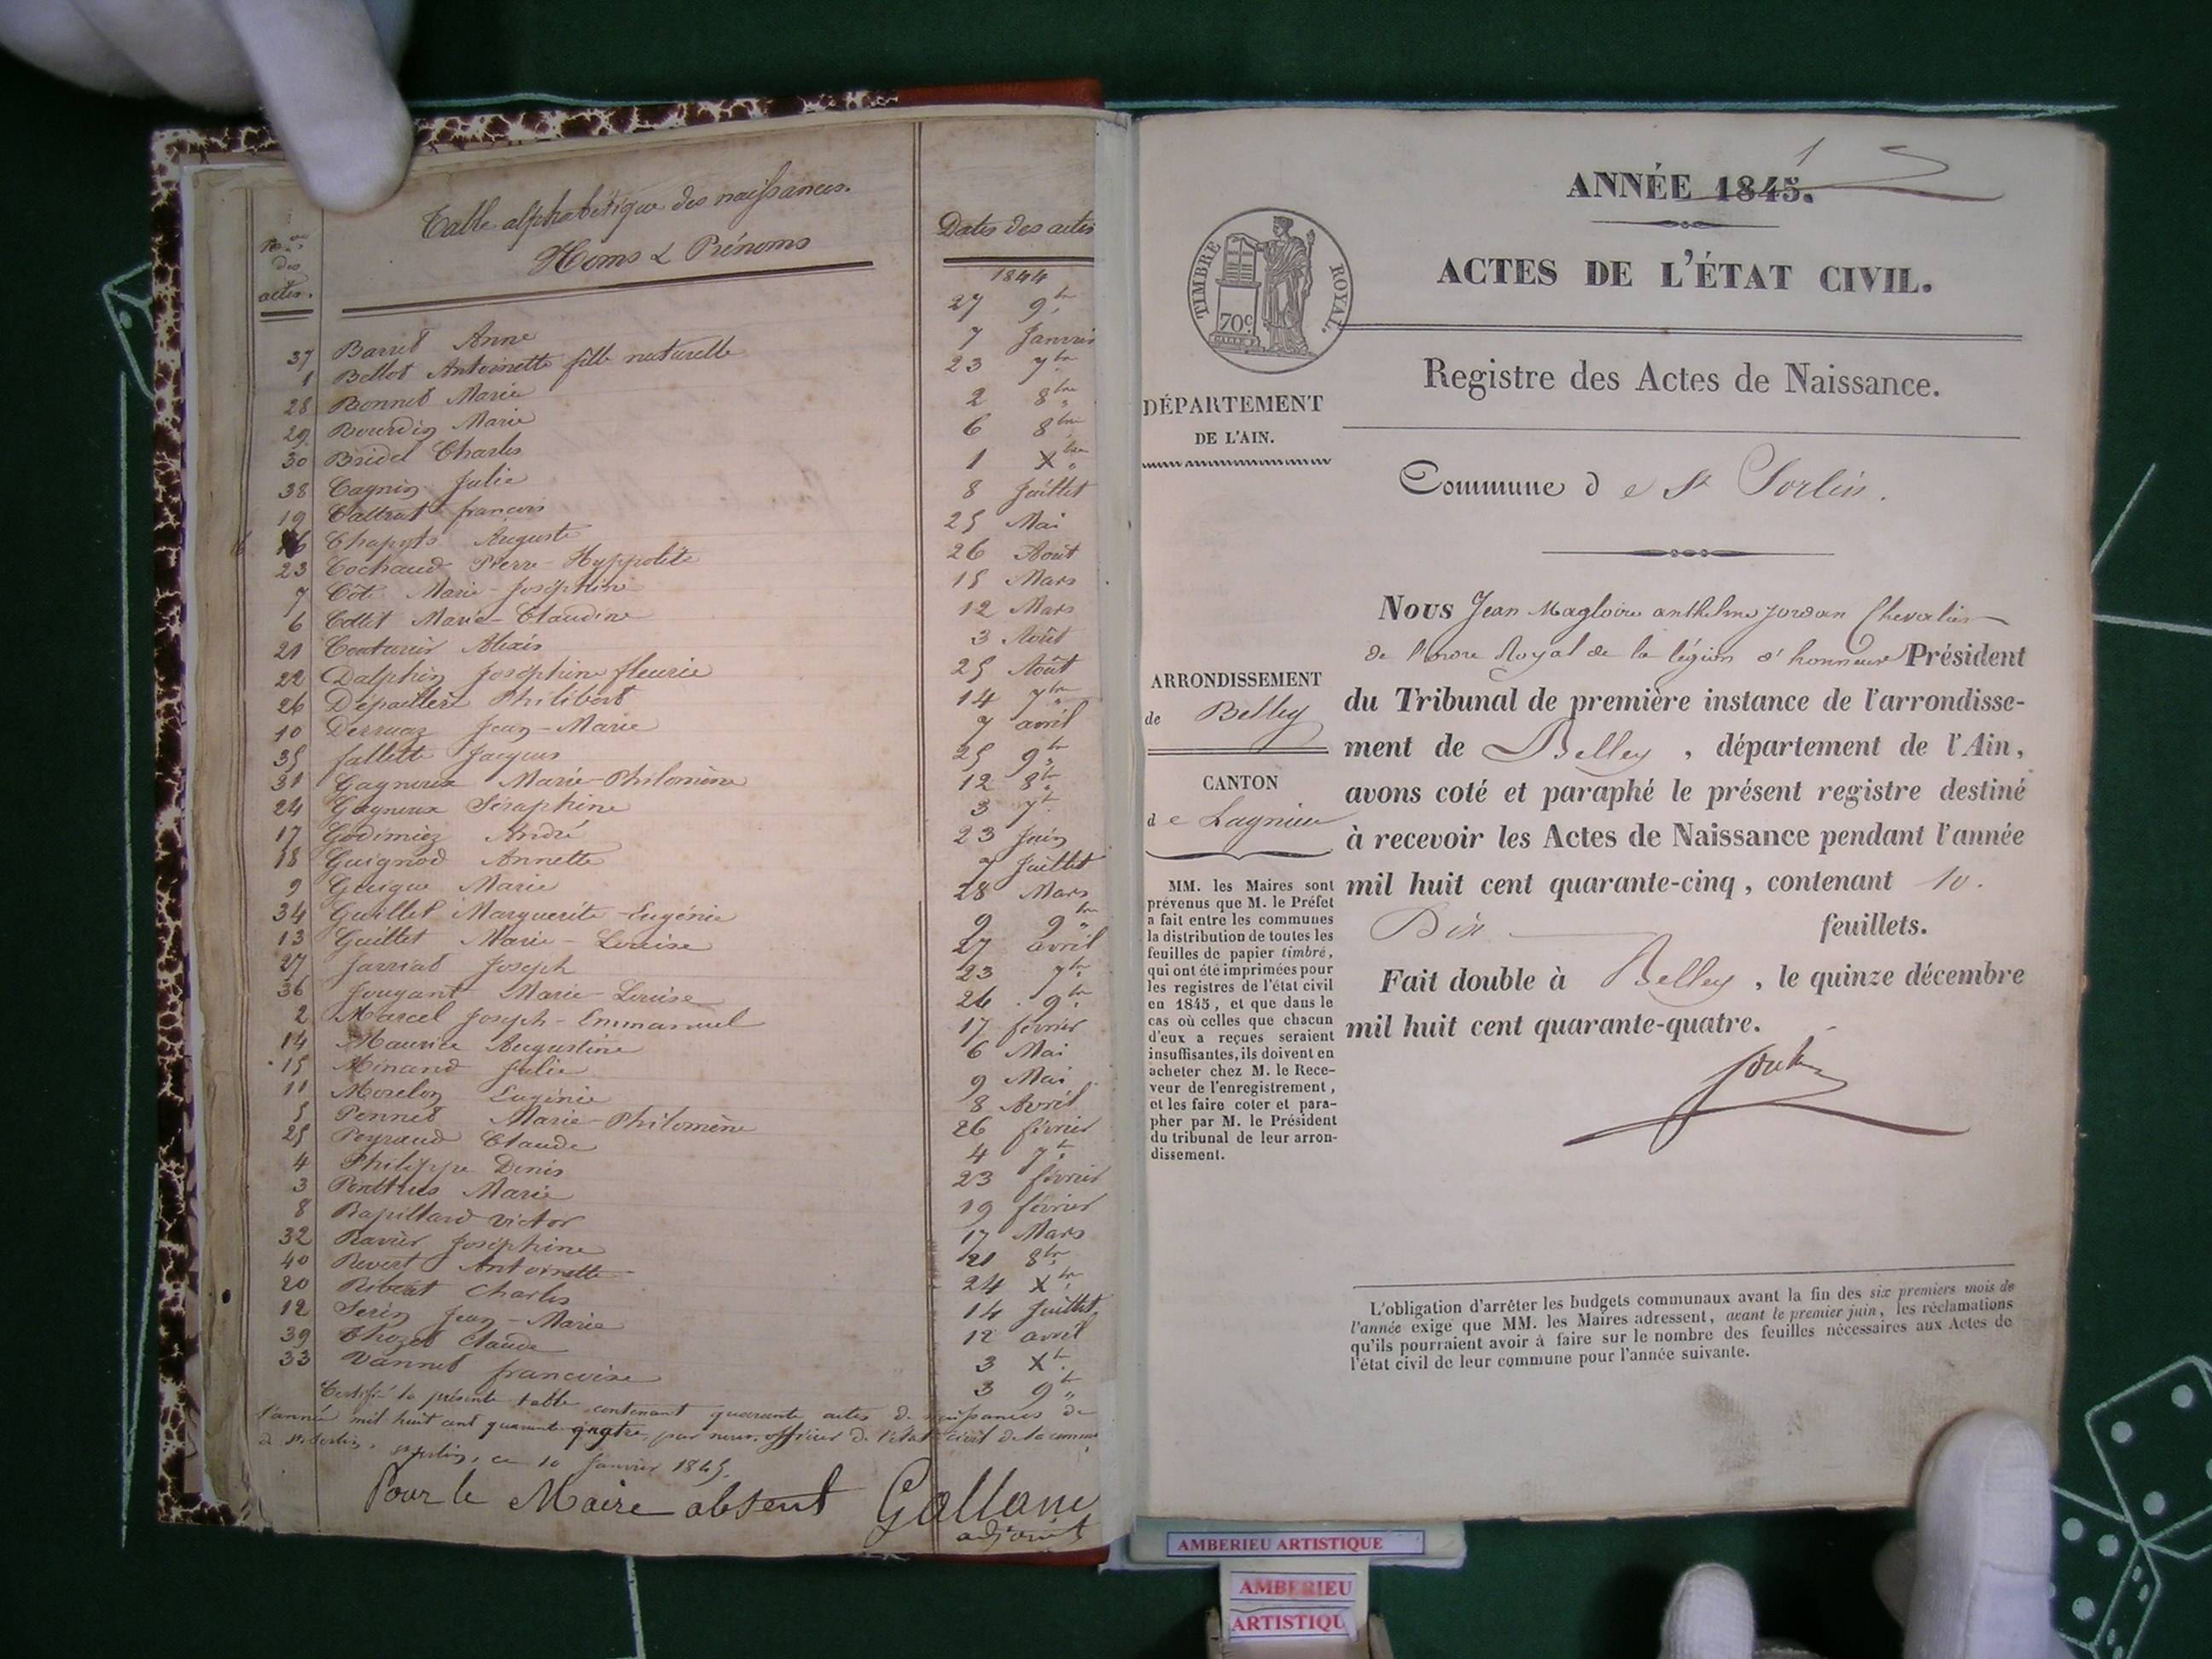 Table alphabétique des naissances.
Nos des actes.
Noms & Prénoms
Dates des actes
1844
37 Barret Anne 27 9bre
1 Bellot Antoinette fille naturelle 7 Janvier
28 Bonnet Marie 23 7bre
29 Bourdin Marie 2 8bre
30 Bridel Charles 6 8bre
38 Cagnin Julie 1 Xbre
19 Caltrat françois 8 Juillet
16 Chapots Auguste 25 Mai
23 Cochaud Pierre-Hyppolite 26 Août
7 Côt Marie-Joséphine 15 Mars
6 Collet Marie-Claudine 12 Mars
21 Couturier Alexis 3 Août
22 Dalphin Joséphine fleurie 25 Août
26 Dépaillert Philibert 14 7bre
10 Derruaz Jean-Marie 7 avril
35 fallett Jacques 25 9bre
31 Gagneux Marie-Philomène 12 8bre
24 Gagneux Séraphine 3 7bre
17 Godimiez André 23 Juin
18 Guignod Annette 7 Juillet
9 Guigue Marie 28 Mars
34 Guillet Marguerite-Eugénie 9 9bre
13 Guillet Marie-Louise 27 avril
27 Jarriat Joseph 23 7bre
36 Jougant Marie-Louise 26 9bre
2 Marcel Joseph-Emmanuel 17 février
14 Maurice Augustine 6 Mai
15 Minand Julie 9 Mai
11 Morelon Eugénie 8 Avril
5 Pennet Marie-Philomène 26 février
25 Peyraud Claude 4 7bre
4 Philippe Denis 23 février
3 Ponthus Marie 19 février
8 Rapillard Victor 17 Mars
32 Ravier Joséphine 21 8bre
40 Revert Antoinette 24 Xbre
20 Ribeat Charles 14 Juillet
12 Serin Jean-Marie 12 avril
39 Thozet Claude 3 Xbre
33 Vannet francoise 3 9bre
Certifié la présente table contenant quarante actes de naissances de
l'année mil huit cent quarante quatre, par nous, officier de l'état civil de la comm
de St Sorlin. St Sorlin, ce 10 Janvier 1845.
Pour le Maire absent Gallane
adjoint
ANNÉE 1845.
1
TIMBRE ROYAL.
70c
ACTES DE L'ÉTAT CIVIL.
Registre des Actes de Naissance.
DÉPARTEMENT
DE L'AIN.
Commune de St Sorlin.
ARRONDISSEMENT
de Belley
CANTON
de Lagnieu
MM. les Maires sont
prévenus que M. le Préfet
a fait entre les communes
la distribution de toutes les
feuilles de papier timbré,
qui ont été imprimées pour
les registres de l'état civil
en 1845, et que dans le
cas où celles que chacun
d'eux a reçues seraient
insuffisantes, ils doivent en
acheter chez M. le Rece-
veur de l'enregistrement,
et les faire coter et para-
pher par M. le Président
du tribunal de leur arron-
dissement.
Nous Jean Magloire anthelme Jordan Chevalier
de l'ordre Royal de la légion d'honneur Président
du Tribunal de première instance de l'arrondisse-
ment de Belley, département de l'Ain,
avons coté et paraphé le présent registre destiné
à recevoir les Actes de Naissance pendant l'année
mil huit cent quarante-cinq, contenant 10.
Dix feuillets.
Fait double à Belley, le quinze décembre
mil huit cent quarante-quatre.
L'obligation d'arrêter les budgets communaux avant la fin des six premiers mois de
l'année exige que MM. les Maires adressent, avant le premier juin, les réclamations
qu'ils pourraient avoir à faire sur le nombre des feuilles nécessaires aux Actes de
l'état civil de leur commune pour l'année suivante.
AMBERIEU ARTISTIQUE
AMBERIEU
ARTISTIQU